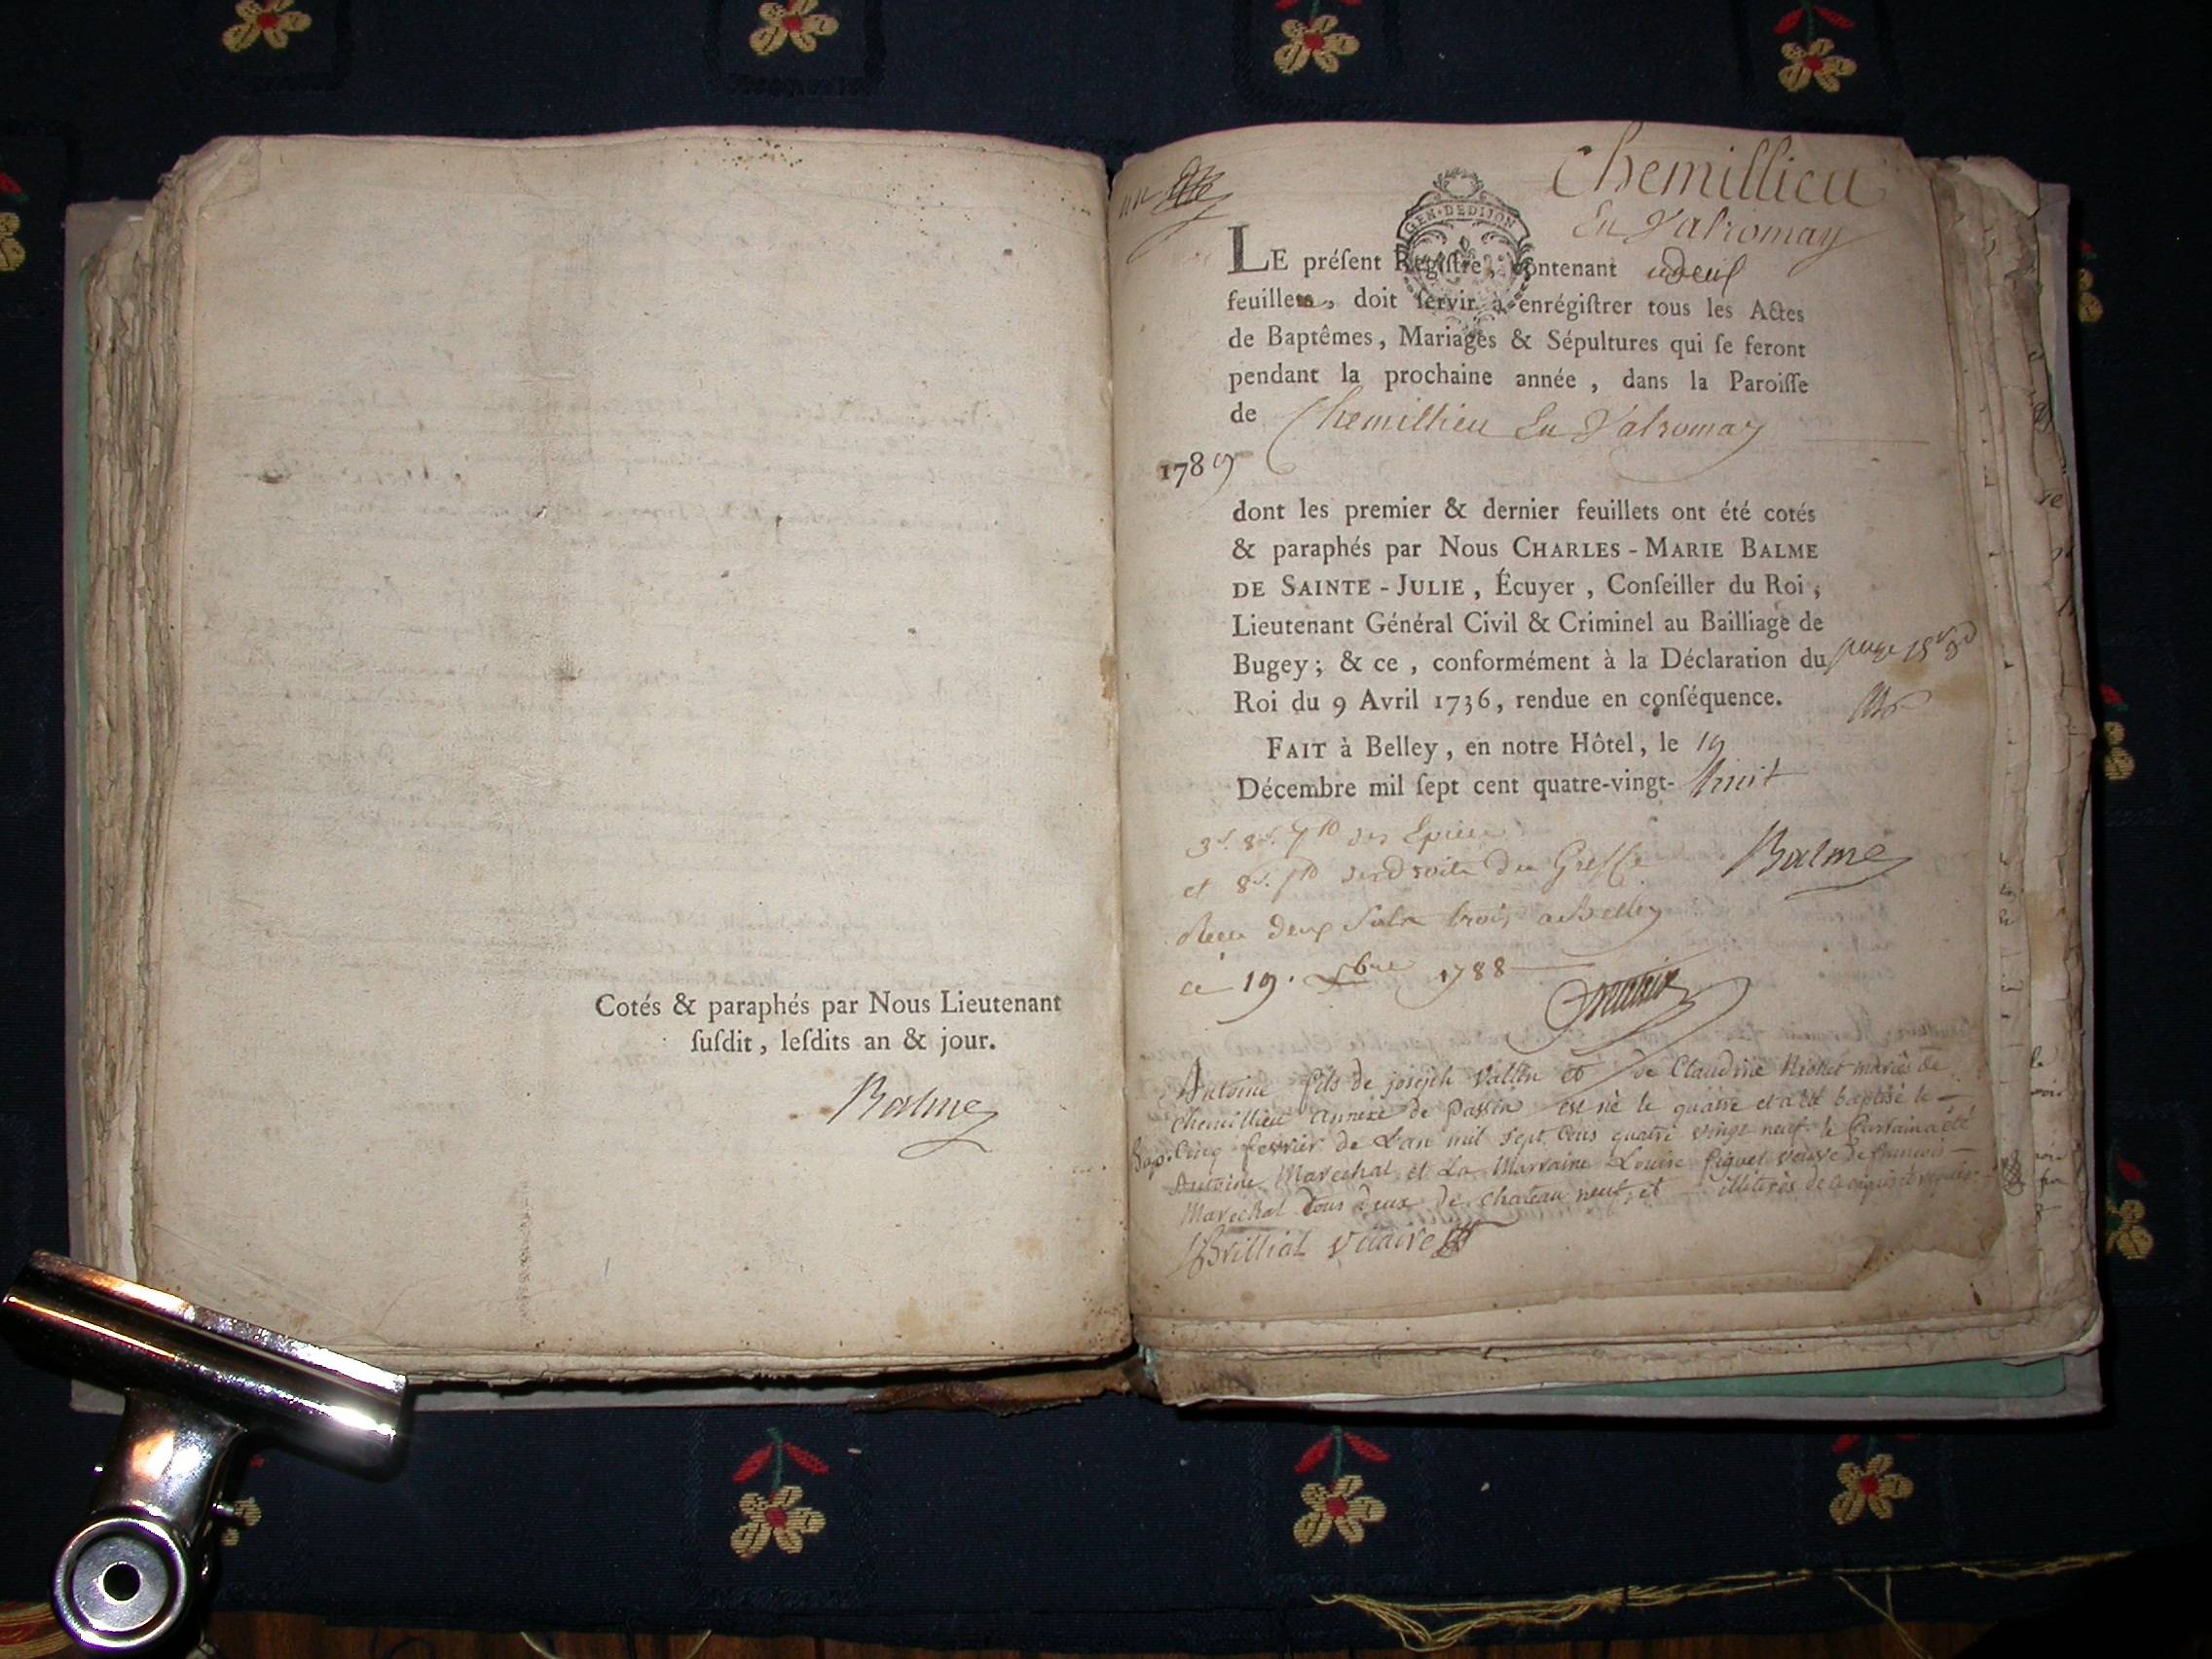 Cotés & paraphés par Nous Lieutenant
ſuſdit, leſdits an & jour.
Balme
Chemillieu
En Valromay
GEN·DEDIJON
LE préſent Regiſtre, contenant
feuillets, doit ſervir à enrégiſtrer tous les Actes
de Baptêmes, Mariages & Sépultures qui ſe feront
pendant la prochaine année, dans la Paroiſſe
de Chemillieu En Valromay
1789
dont les premier & dernier feuillets ont été cotés
& paraphés par Nous CHARLES-MARIE BALME
DE SAINTE-JULIE, Écuyer, Conſeiller du Roi,
Lieutenant Général Civil & Criminel au Bailliage de
Bugey; & ce, conformément à la Déclaration du
Roi du 9 Avril 1736, rendue en conſéquence.
FAIT à Belley, en notre Hôtel, le 19
Décembre mil ſept cent quatre-vingt-huit
Balme
et 8s. des Droits du Greffe
Receu deux sols trois a Belley
ce 19. Xbre 1788
Antoine fils de joseph Vallin et de Claudine mariés de
Chemillieu annexe de Passin est né le quatre et a été baptisé le
Bap. Cinq fevrier de L'an mil sept cens quatre vingt neuf le Parrain a été
Antoine Marechal et La Marraine Louise Piquet veuve de francois
Marechal tous deux de chateau neuf et illiterés de ce enquis et requis
Brillial vicaire